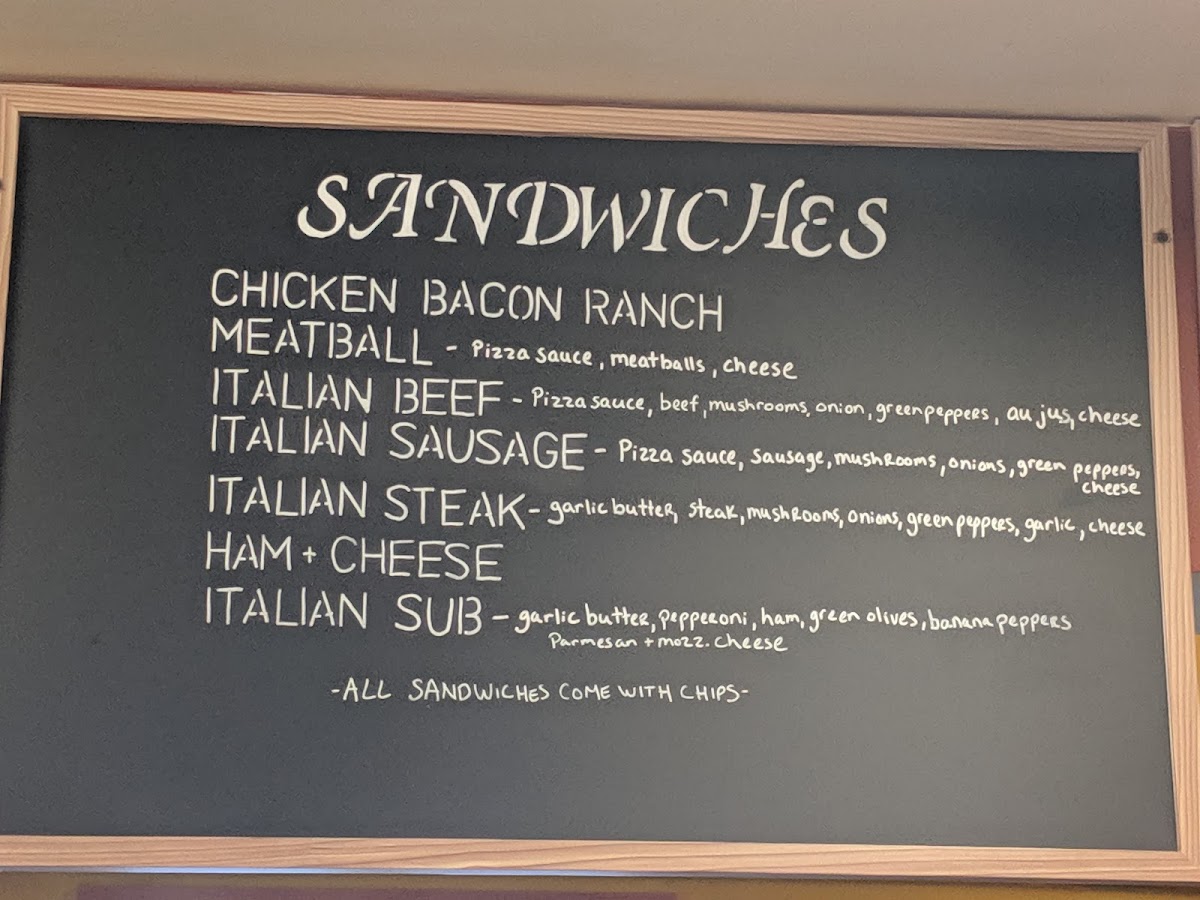 SANDWICHES
CHICKEN BACON RANCH
MEATBALL - Pizza sauce, meatballs, cheese
ITALIAN BEEF - Pizza sauce, beef, mushrooms, onion, green peppers, au jus, cheese
ITALIAN SAUSAGE - Pizza sauce, sausage, mushrooms, onions, green peppers,
cheese
ITALIAN STEAK - garlic butter, steak, mushrooms, onions, green peppers, garlic, cheese
HAM + CHEESE
ITALIAN SUB - garlic butter, pepperoni, ham, green olives, banana peppers
Parmesan + mozz. cheese
-ALL SANDWICHES COME WITH CHIPS-